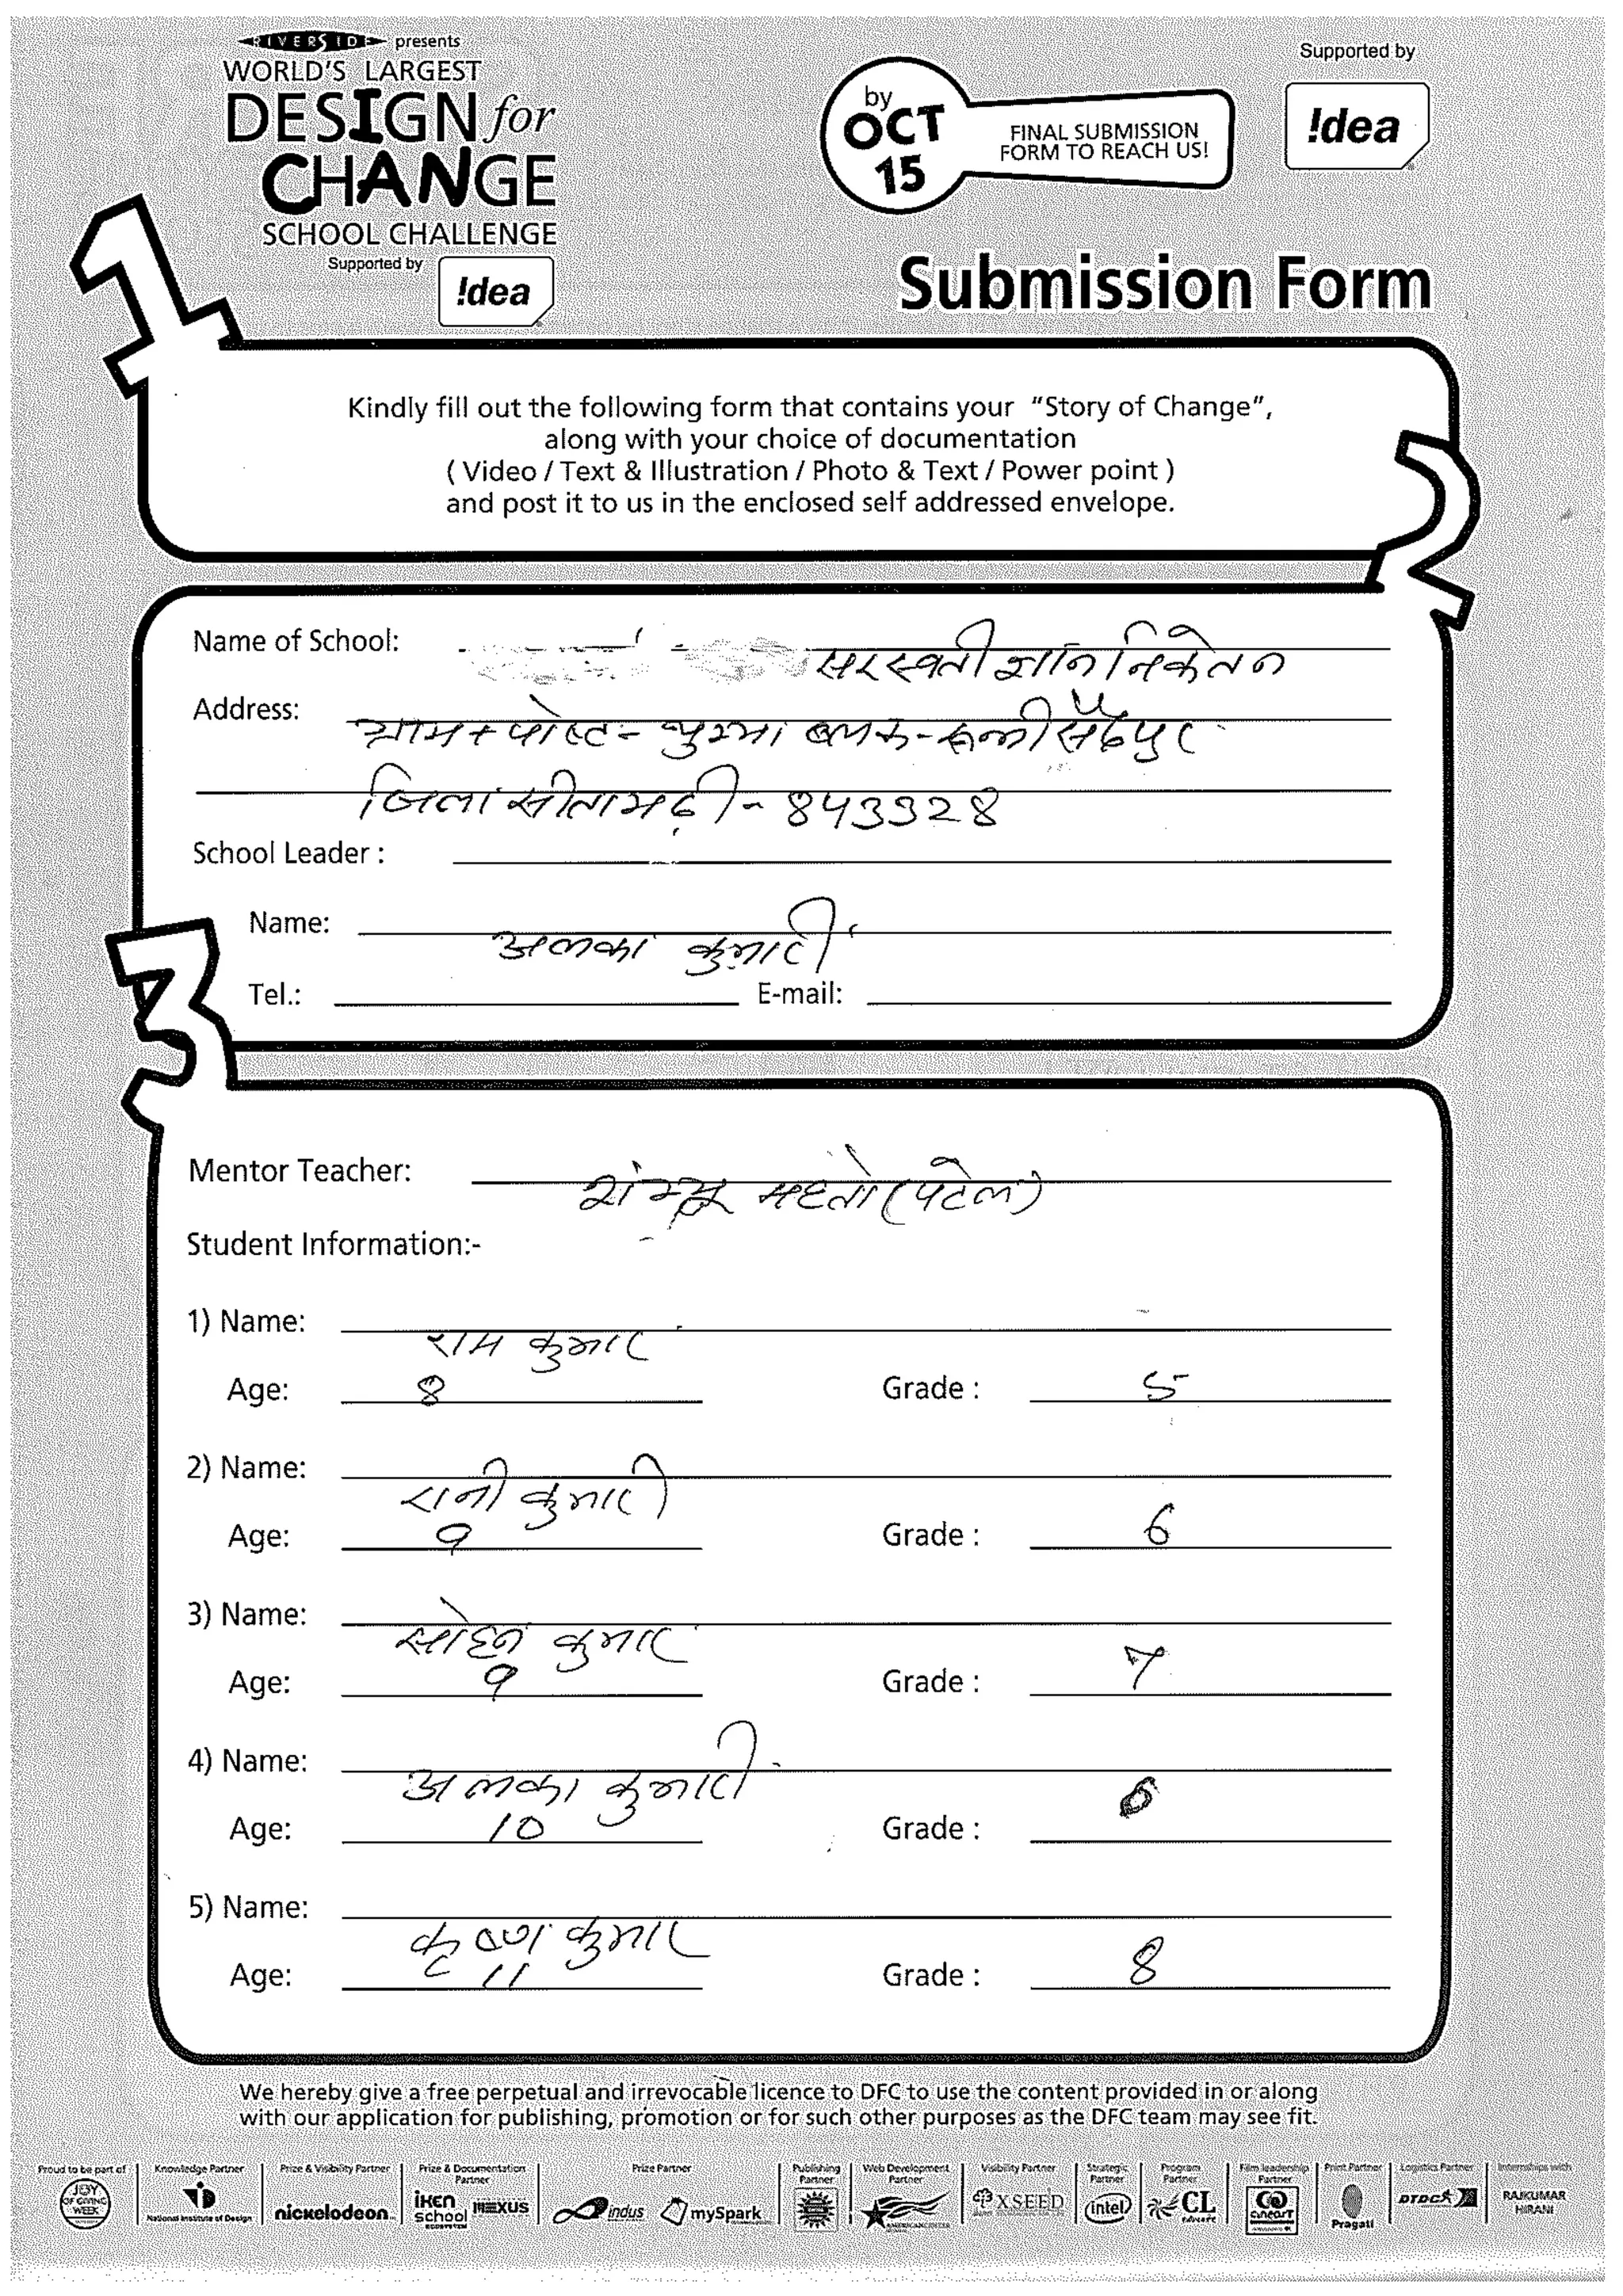 RIVERSIDE presents
WORLD'S LARGEST
DESIGN for
CHANGE
SCHOOL CHALLENGE
Supported by
!dea
by
OCT
15
FINAL SUBMISSION
FORM TO REACH US!
Supported by
!dea
Submission Form
1
Kindly fill out the following form that contains your "Story of Change",
along with your choice of documentation
( Video / Text & Illustration / Photo & Text / Power point )
and post it to us in the enclosed self addressed envelope.
2
Name of School: सरस्वती ज्ञान निकेतन
Address: ग्राम + पोस्ट - थुम्मा ब्लाक - रून्नी सैदपुर
जिला सीतामढ़ी - 843328
School Leader :
Name: अलका कुमारी
Tel.: E-mail:
3
Mentor Teacher: शंम्भू महतो (पटेल)
Student Information:-
1) Name: राम कुमार
Age: 8 Grade : 5
2) Name: रानी कुमारी
Age: 9 Grade : 6
3) Name: सोहन कुमार
Age: 9 Grade : 7
4) Name: अलका कुमारी
Age: 10 Grade :
5) Name: कृष्ण कुमार
Age: 11 Grade : 8
We hereby give a free perpetual and irrevocable licence to DFC to use the content provided in or along
with our application for publishing, promotion or for such other purposes as the DFC team may see fit.
Proud to be part of Knowledge Partner Prize & Visibility Partner Prize & Documentation Partner Prize Partner Publishing Partner Web Development Partner Visibility Partner Strategic Partner Program Partner Film leadership Partner Print Partner Logistics Partner Internships with
JOY OF GIVING WEEK National Institute of Design nickelodeon iKEN school NEXUS indus mySpark XSEED intel CL educate cineart Pragati DTDC RAJKUMAR HIRANI